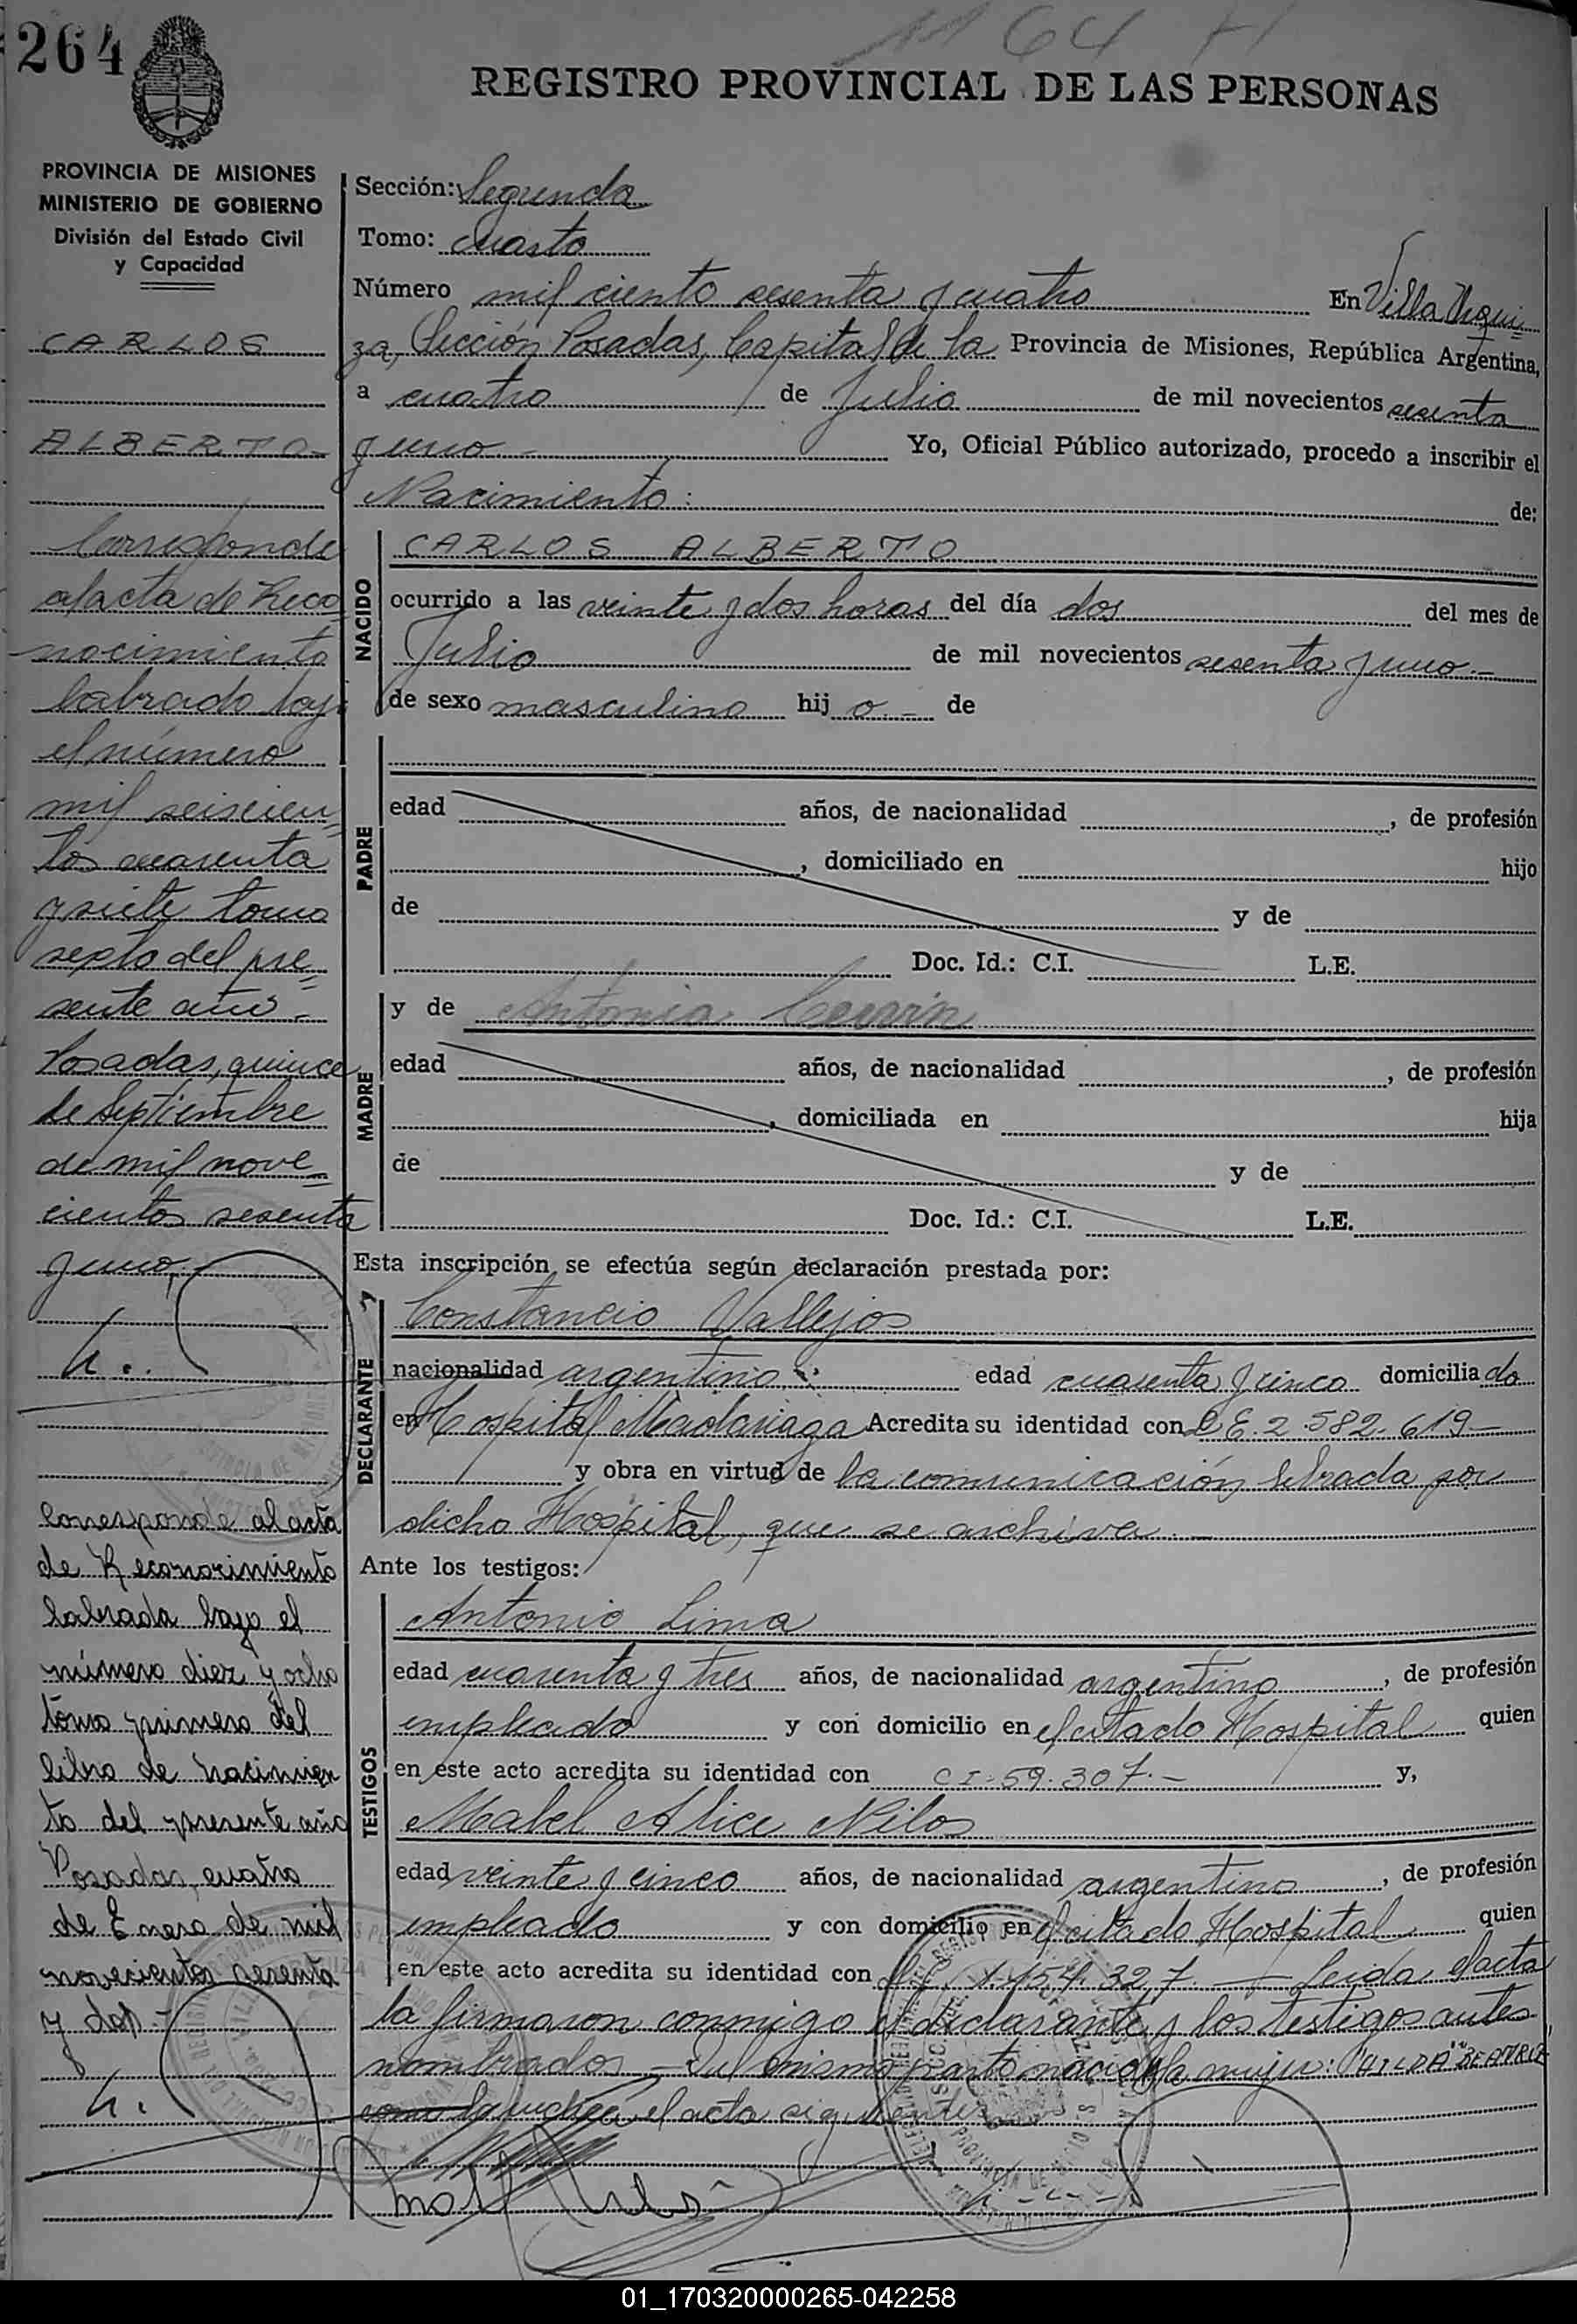 264
1164
REGISTRO PROVINCIAL DE LAS PERSONAS
PROVINCIA DE MISIONES
MINISTERIO DE GOBIERNO
División del Estado Civil
y Capacidad
CARLOS
ALBERTO
Corresponde
al acta de Reco
nocimiento
labrado bajo
el número
mil seiscien
tos cuarenta
y siete tomo
sexto del pre
sente año.-
Posadas, quince
de Septiembre
de mil nove
cientos sesenta
y uno,
Corresponde al acta
de Reconocimiento
labrada bajo el
número diez y ocho
tomo primero del
libro de Nacimien
to del presente año
Posadas, cuatro
de Enero de mil
novecientos sesenta
y dos.-
Sección: Segunda
Tomo: cuarto
Número mil ciento sesenta y cuatro En Villa Urqui
za, Sección Posadas, Capital de la Provincia de Misiones, República Argentina,
a cuatro de Julio de mil novecientos sesenta
y uno - Yo, Oficial Público autorizado, procedo a inscribir el
Nacimiento: de:
NACIDO
CARLOS ALBERTO
ocurrido a las veinte y dos horas del día dos del mes de
Julio de mil novecientos sesenta y uno.-
de sexo masculino hijo.- de
PADRE
edad años, de nacionalidad , de profesión
, domiciliado en hijo
de y de
Doc. Id.: C.I. L.E.
MADRE
y de Antonia
edad años, de nacionalidad , de profesión
, domiciliada en hija
de y de
Doc. Id.: C.I. L.E.
Esta inscripción se efectúa según declaración prestada por:
DECLARANTE
Constancio Vallejos
nacionalidad argentino edad cuarenta y cinco domiciliado
en Hospital Madariaga Acredita su identidad con L E. 2.582.619-
y obra en virtud de la comunicación librada por
dicho Hospital, que se archiva.-
Ante los testigos:
TESTIGOS
Antonio Lima
edad cuarenta y tres años, de nacionalidad argentino , de profesión
empleado y con domicilio en el citado Hospital quien
en este acto acredita su identidad con CI-59.307.- y,
Mabel Alice Nilos
edad veinte y cinco años, de nacionalidad argentina , de profesión
empleado y con domicilio en el citado Hospital quien
en este acto acredita su identidad con 1.154.327. - Leida el acta
la firmaron conmigo el declarante y los testigos antes
nombrados - Del mismo parto nació la mujer: "HILDA" "BEATRIZ"
el acta siguiente
01_170320000265-042258